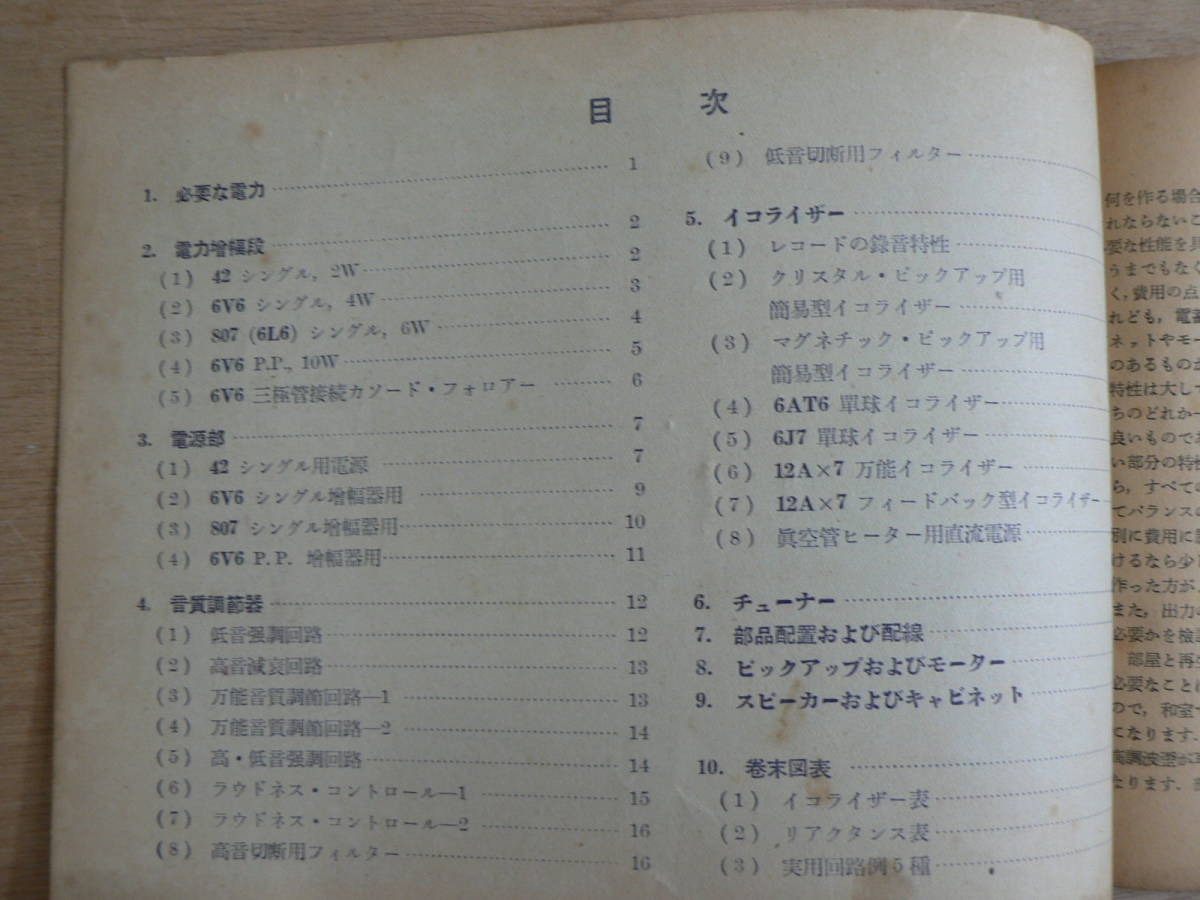 目 次
1. 必要な電力 1
2. 電力増幅段 2
(1) 42 シングル, 2W 2
(2) 6V6 シングル, 4W 3
(3) 807 (6L6) シングル, 6W 4
(4) 6V6 P.P., 10W 5
(5) 6V6 三極管接続カソード・フォロアー 6
3. 電源部 7
(1) 42 シングル用電源 7
(2) 6V6 シングル増幅器用 9
(3) 807 シングル増幅器用 10
(4) 6V6 P.P. 増幅器用 11
4. 音質調節器 12
(1) 低音强調回路 12
(2) 高音減衰回路 13
(3) 万能音質調節回路—1 13
(4) 万能音質調節回路—2 14
(5) 高・低音强調回路 14
(6) ラウドネス・コントロール—1 15
(7) ラウドネス・コントロール—2 16
(8) 高音切断用フィルター 16
(9) 低音切断用フィルター
5. イコライザー
(1) レコードの錄音特性
(2) クリスタル・ピックアップ用
簡易型イコライザー
(3) マグネチック・ピックアップ用
簡易型イコライザー
(4) 6AT6 單球イコライザー
(5) 6J7 單球イコライザー
(6) 12A×7 万能イコライザー
(7) 12A×7 フィードバック型イコライザー
(8) 眞空管ヒーター用直流電源
6. チューナー
7. 部品配置および配線
8. ピックアップおよびモーター
9. スピーカーおよびキャビネット
10. 卷末図表
(1) イコライザー表
(2) リアクタンス表
(3) 実用回路例5種
何を作る場合
れならないと
要な性能を具
うまでもなく
く, 費用の点
れども, 電源
ネットやモー
のあるものが
特性は大し
ちのどれか一
良いものであ
い部分の特性
ら, すべての
てバランスの
別に費用に
けるなら少し
作った方が、
また, 出力
必要かを検
部屋と再生
必要なことは
ので, 和室で
になります.
高調波歪が
なります.